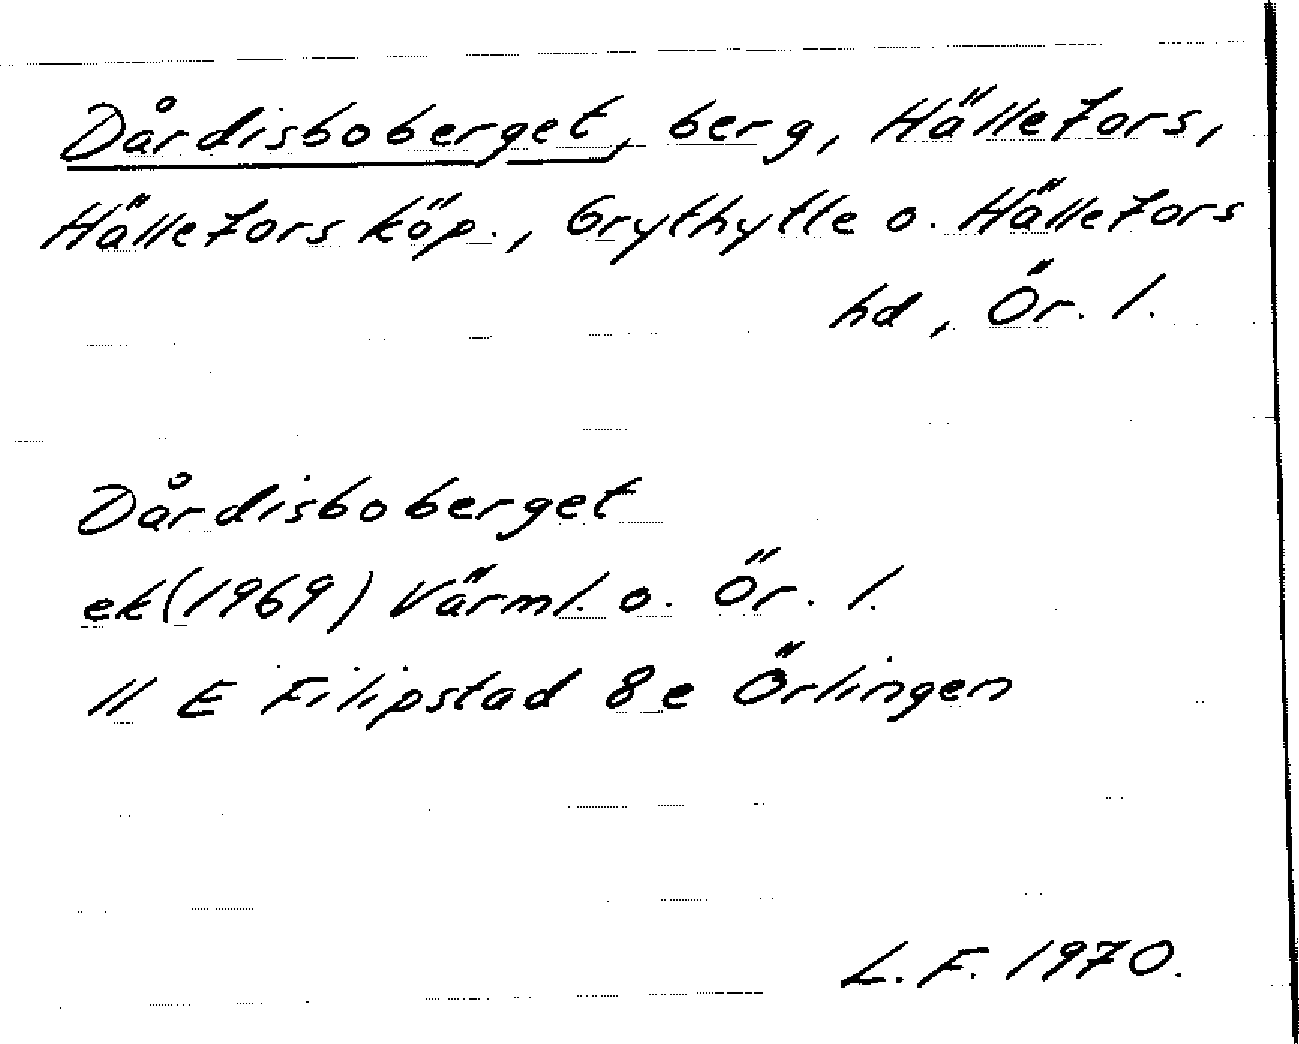 Dårdisboberget, berg, Hällefors,
Hällefors köp., Grythytte o. Hällefors
hd, Ör. l.
Dårdisboberget
ek (1969) Värml. o. Ör. l.
11 E Filipstad 8e Örlingen
L. F. 1970.